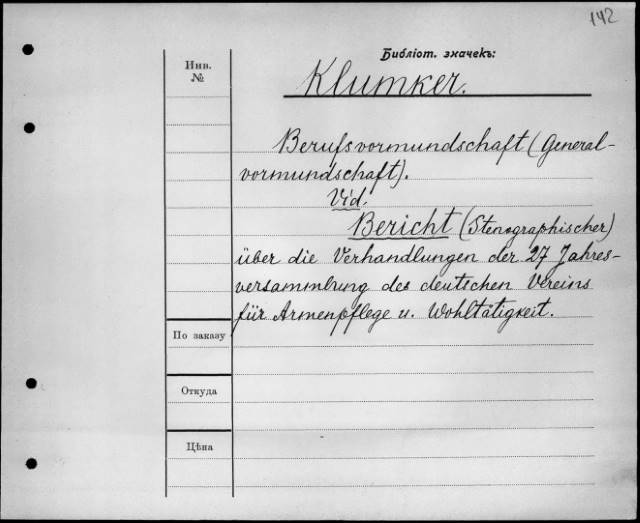 142
Библіот. значекъ:
Инв.
№
Klumker.
Berufsvormundschaft (General-
vormundschaft).
Vid.
Bericht (Stenographischer)
über die Verhandlungen der 27 Jahres-
versammlung des deutschen Vereins
für Armenpflege u. Wohltätigkeit.
По заказу
Откуда
Цѣна